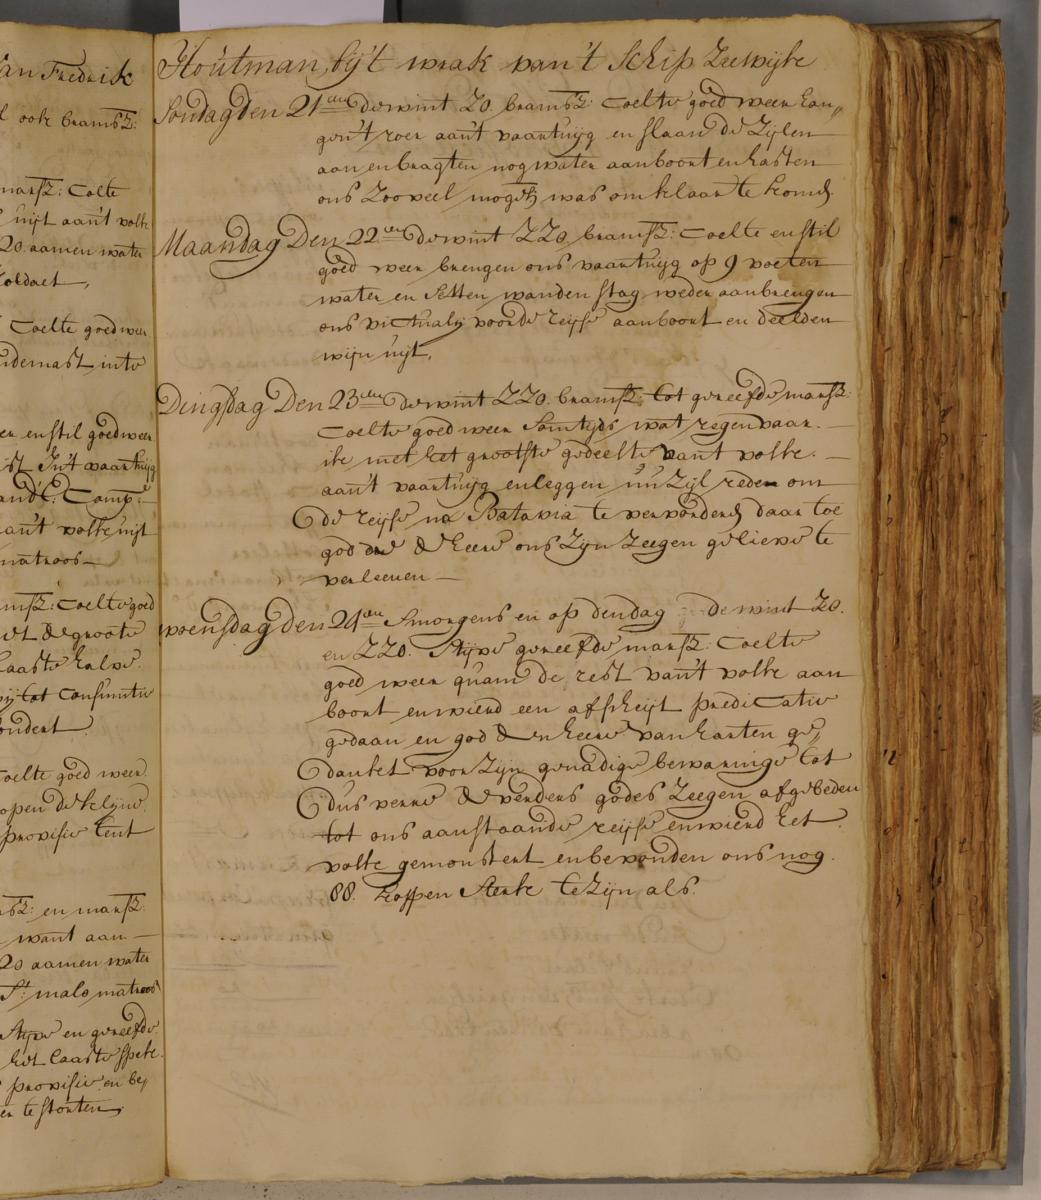 an Fredrik
l ook bramsz:
marsz: Coelte
uijt aant volk
20 aamen water
Soldaet,
Coelte goed weer
demast inte
en stil goed weer
Int vaartuijg
and E: Comp:
aant volk uijt
matroos
amsz: Coelte goed
et de groote
laaste halve
tot Consumtie
ondert.
Coelte goed weer
open de kleijne
provisie tent
en marsz:
want aan
20 aamen water
St: malo matroos
Stijve en gereefde
het laaste spek
provisie en be,,
en te storten,
Houtman, bij't wrak van't Schip Zeewijke
Sondag den 21en de wint ZO. bramsz: Coelte goed weer han,,
gen't roer aant vaartuijg en slaan de Zijlen
aan en bragten nog water aanboort en hasten
ons Zooveel mogelk was om klaar te komen
Maandag Den 22en de wint ZZO. bramsz: Coelte en stil
goed weer brengen ons vaartuijg op 9 voeten
water en Setten wand en stag weder aan brengen
ons victualij voor de reijse aanboort en deelden
wijn uijt.
Dingsdag Den 23en de wint ZZO. bramsz: tot gereefde marsz:
Coelte goed weer Somtijds wat regen vaar.
ike met het grootste gedeelte vant volk.
aant vaartuijg en leggen nu Zijl reden om
de reijse na Batavia te vervorderen daar toe
god de heere ons Zijn Zeegen gelieve te
verleenen
woensdag den 24en Smorgens en op den dag de wint ZO.
en ZZO. Stijve gereefde marsz: Coelte
goed weer quam de rest vant volk aan
boort en wierd een afscheijt predicatie
gedaan en god den heere van harten ge,,
dankt voor Zijn genadige bewaringe tot
dus verre & verders godes Zeegen afgebeden
tot ons aanstaande reijse en wierd het
volk gemonstert en bevonden ons nog.
88. koppen Sterk te Zijn als.